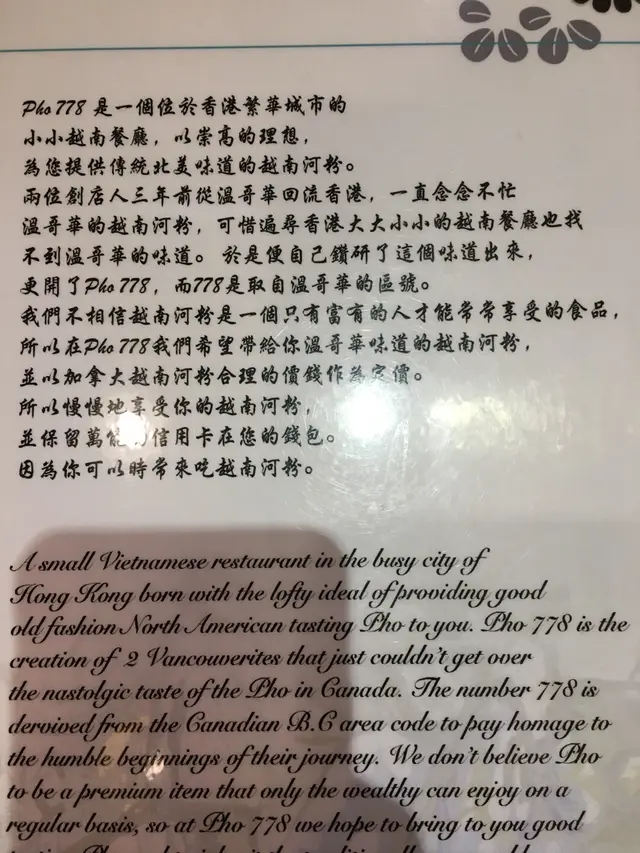 Pho 778 是一個位於香港繁華城市的
小小越南餐廳，以崇高的理想，
為您提供傳統北美味道的越南河粉。
兩位創店人三年前從溫哥華回流香港，一直念念不忙
溫哥華的越南河粉，可惜遍尋香港大大小小的越南餐廳也找
不到溫哥華的味道。於是便自己鑽研了這個味道出來，
更開了Pho 778，而778是取自溫哥華的區號。
我們不相信越南河粉是一個只有富有的人才能常常享受的食品，
所以在Pho 778我們希望帶給你溫哥華味道的越南河粉，
並以加拿大越南河粉合理的價錢作為定價。
所以慢慢地享受你的越南河粉，
並保留萬能的信用卡在您的錢包。
因為你可以時常來吃越南河粉。
A small Vietnamese restaurant in the busy city of
Hong Kong born with the lofty ideal of providing good
old fashion North American tasting Pho to you. Pho 778 is the
creation of 2 Vancouverites that just couldn't get over
the nastolgic taste of the Pho in Canada. The number 778 is
dervived from the Canadian B.C area code to pay homage to
the humble beginnings of their journey. We don't believe Pho
to be a premium item that only the wealthy can enjoy on a
regular basis, so at Pho 778 we hope to bring to you good